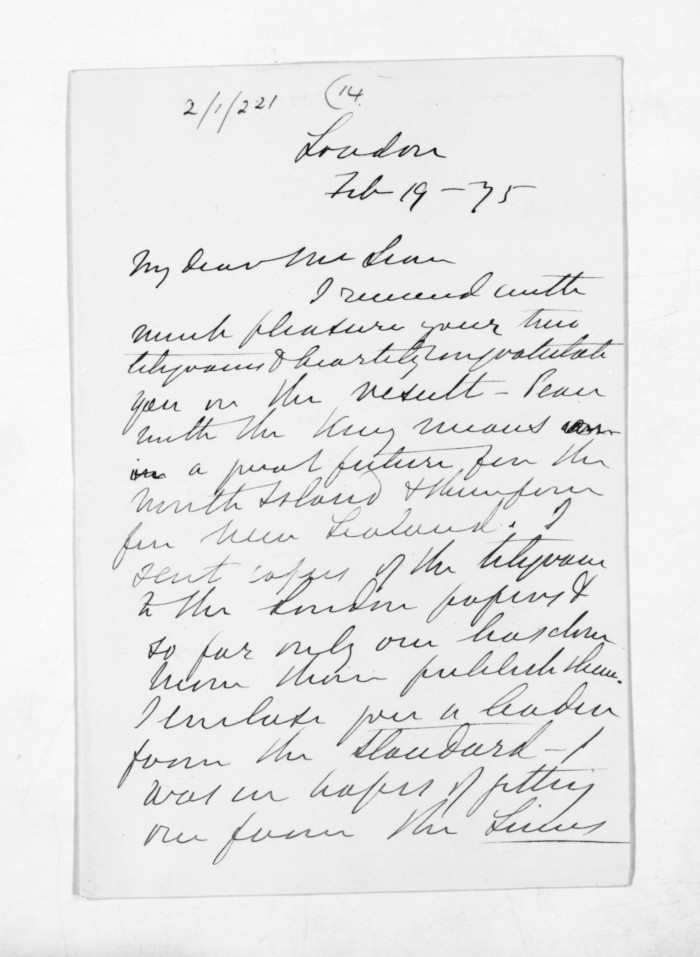 2/1/221 (14.
London
Feb 19 - 75
My dear McLean
I received with
much pleasure your two
telegrams & heartily congratulate
you on the result - Peace
with the King means
in a great future for the
North Island & therefore
for New Zealand. I
sent copies of the telegram
to the London papers &
so far only one has done
more than publish them.
I enclose you a leader
from the Standard - I
was in hopes of getting
one from the Times